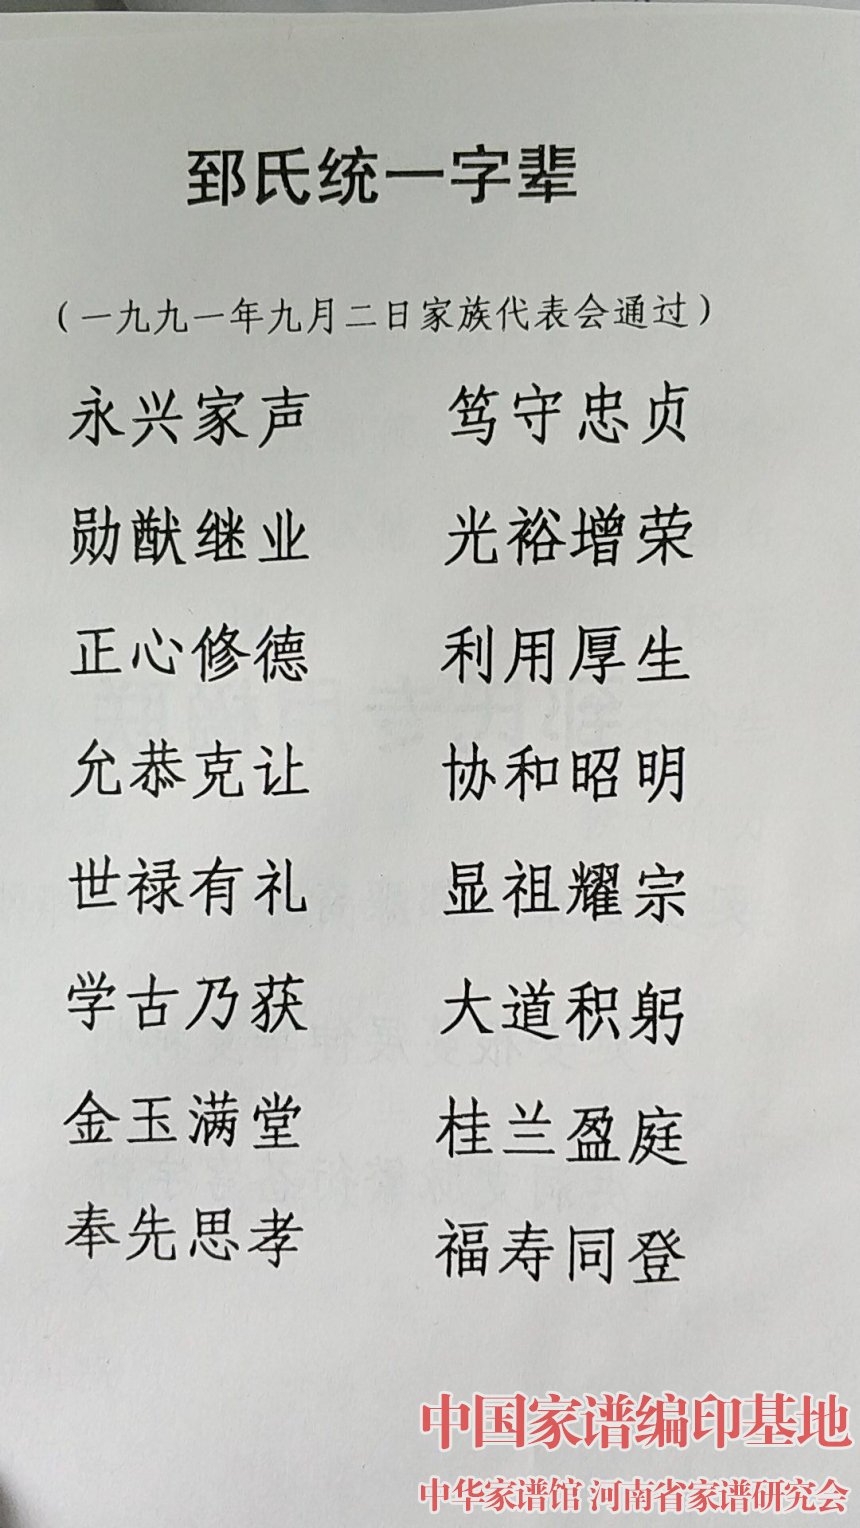 郅氏统一字辈
（一九九一年九月二日家族代表会通过）
永兴家声 笃守忠贞
勋猷继业 光裕增荣
正心修德 利用厚生
允恭克让 协和昭明
世禄有礼 显祖耀宗
学古乃获 大道积躬
金玉满堂 桂兰盈庭
奉先思孝 福寿同登
中国家谱编印基地
中华家谱馆 河南省家谱研究会